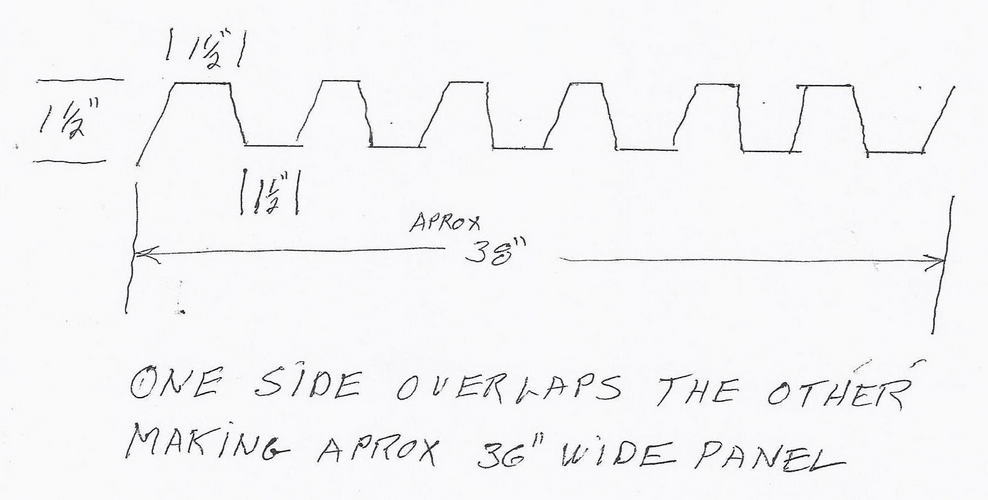 1 1/2"
1 1/2"
1 1/2"
APROX
38"
ONE SIDE OVERLAPS THE OTHER
MAKING APROX 36" WIDE PANEL